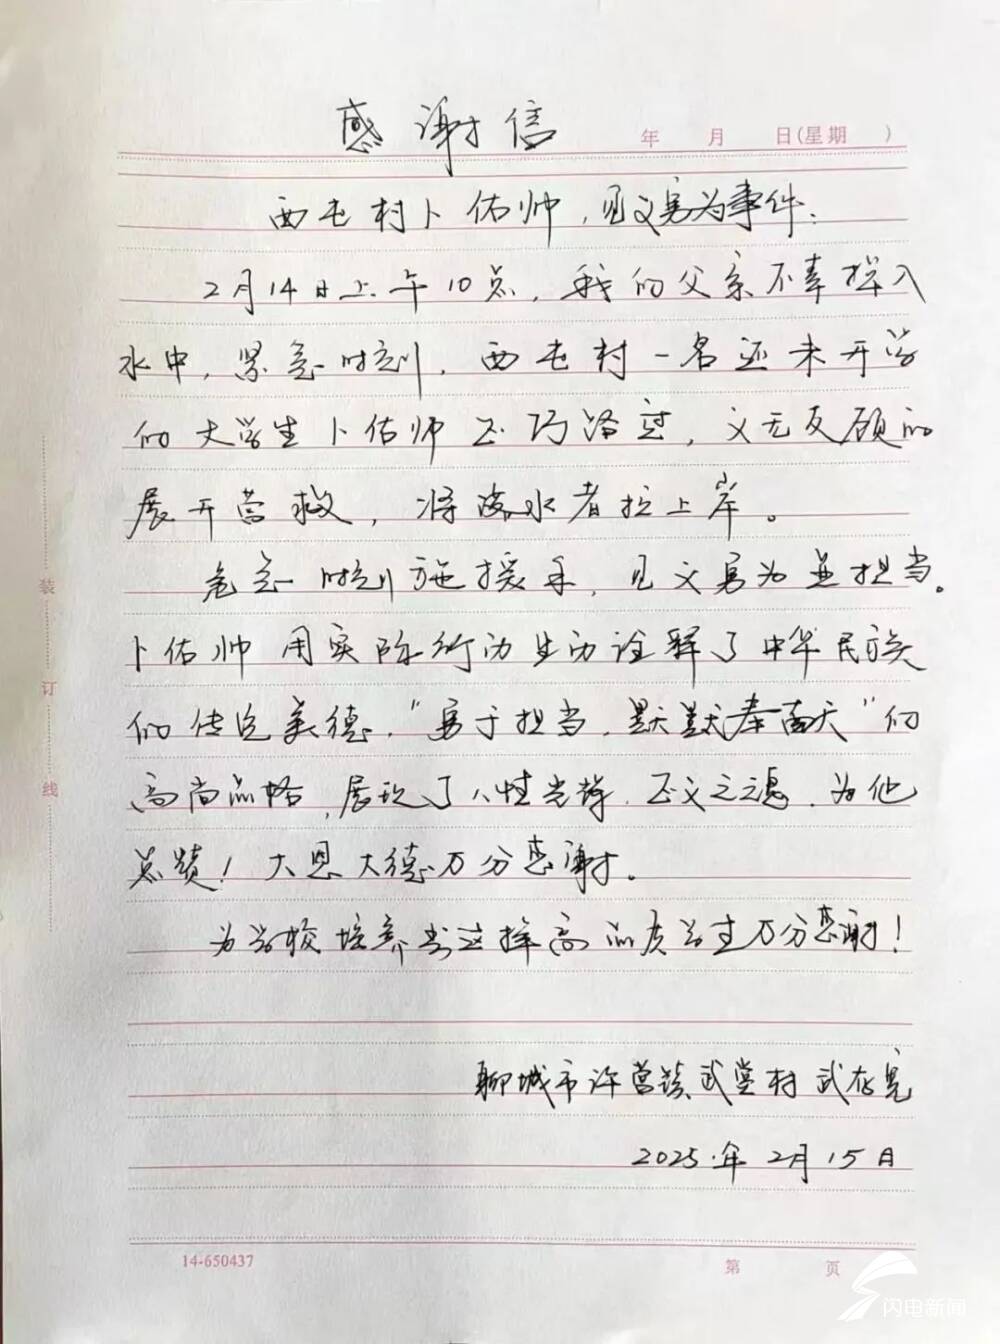 感谢信
年 月 日(星期 )
西屯村卜佑帅,见义勇为事件:
2月14日上午10点,我的父亲不幸掉入
水中,紧急时刻,西屯村一名还未开学
的大学生卜佑帅正巧路过,义无反顾的
展开营救,将落水者拉上岸。
危急时刻施援手,见义勇为显担当。
卜佑帅用实际行动生动诠释了中华民族
的传统美德,"勇于担当,默默奉献"的
高尚品格,展现了人性光辉,正义之魂,为他
点赞!大恩大德万分感谢。
为学校培养出这样高品质学生万分感谢!
聊城市许营镇武堂村 武存亮
2025年2月15日
装
订
线
14-650437
第 页
闪电新闻